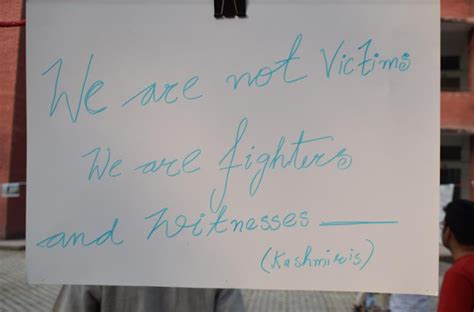 We are not Victims
We are fighters
and Witnesses ———
(Kashmiris)